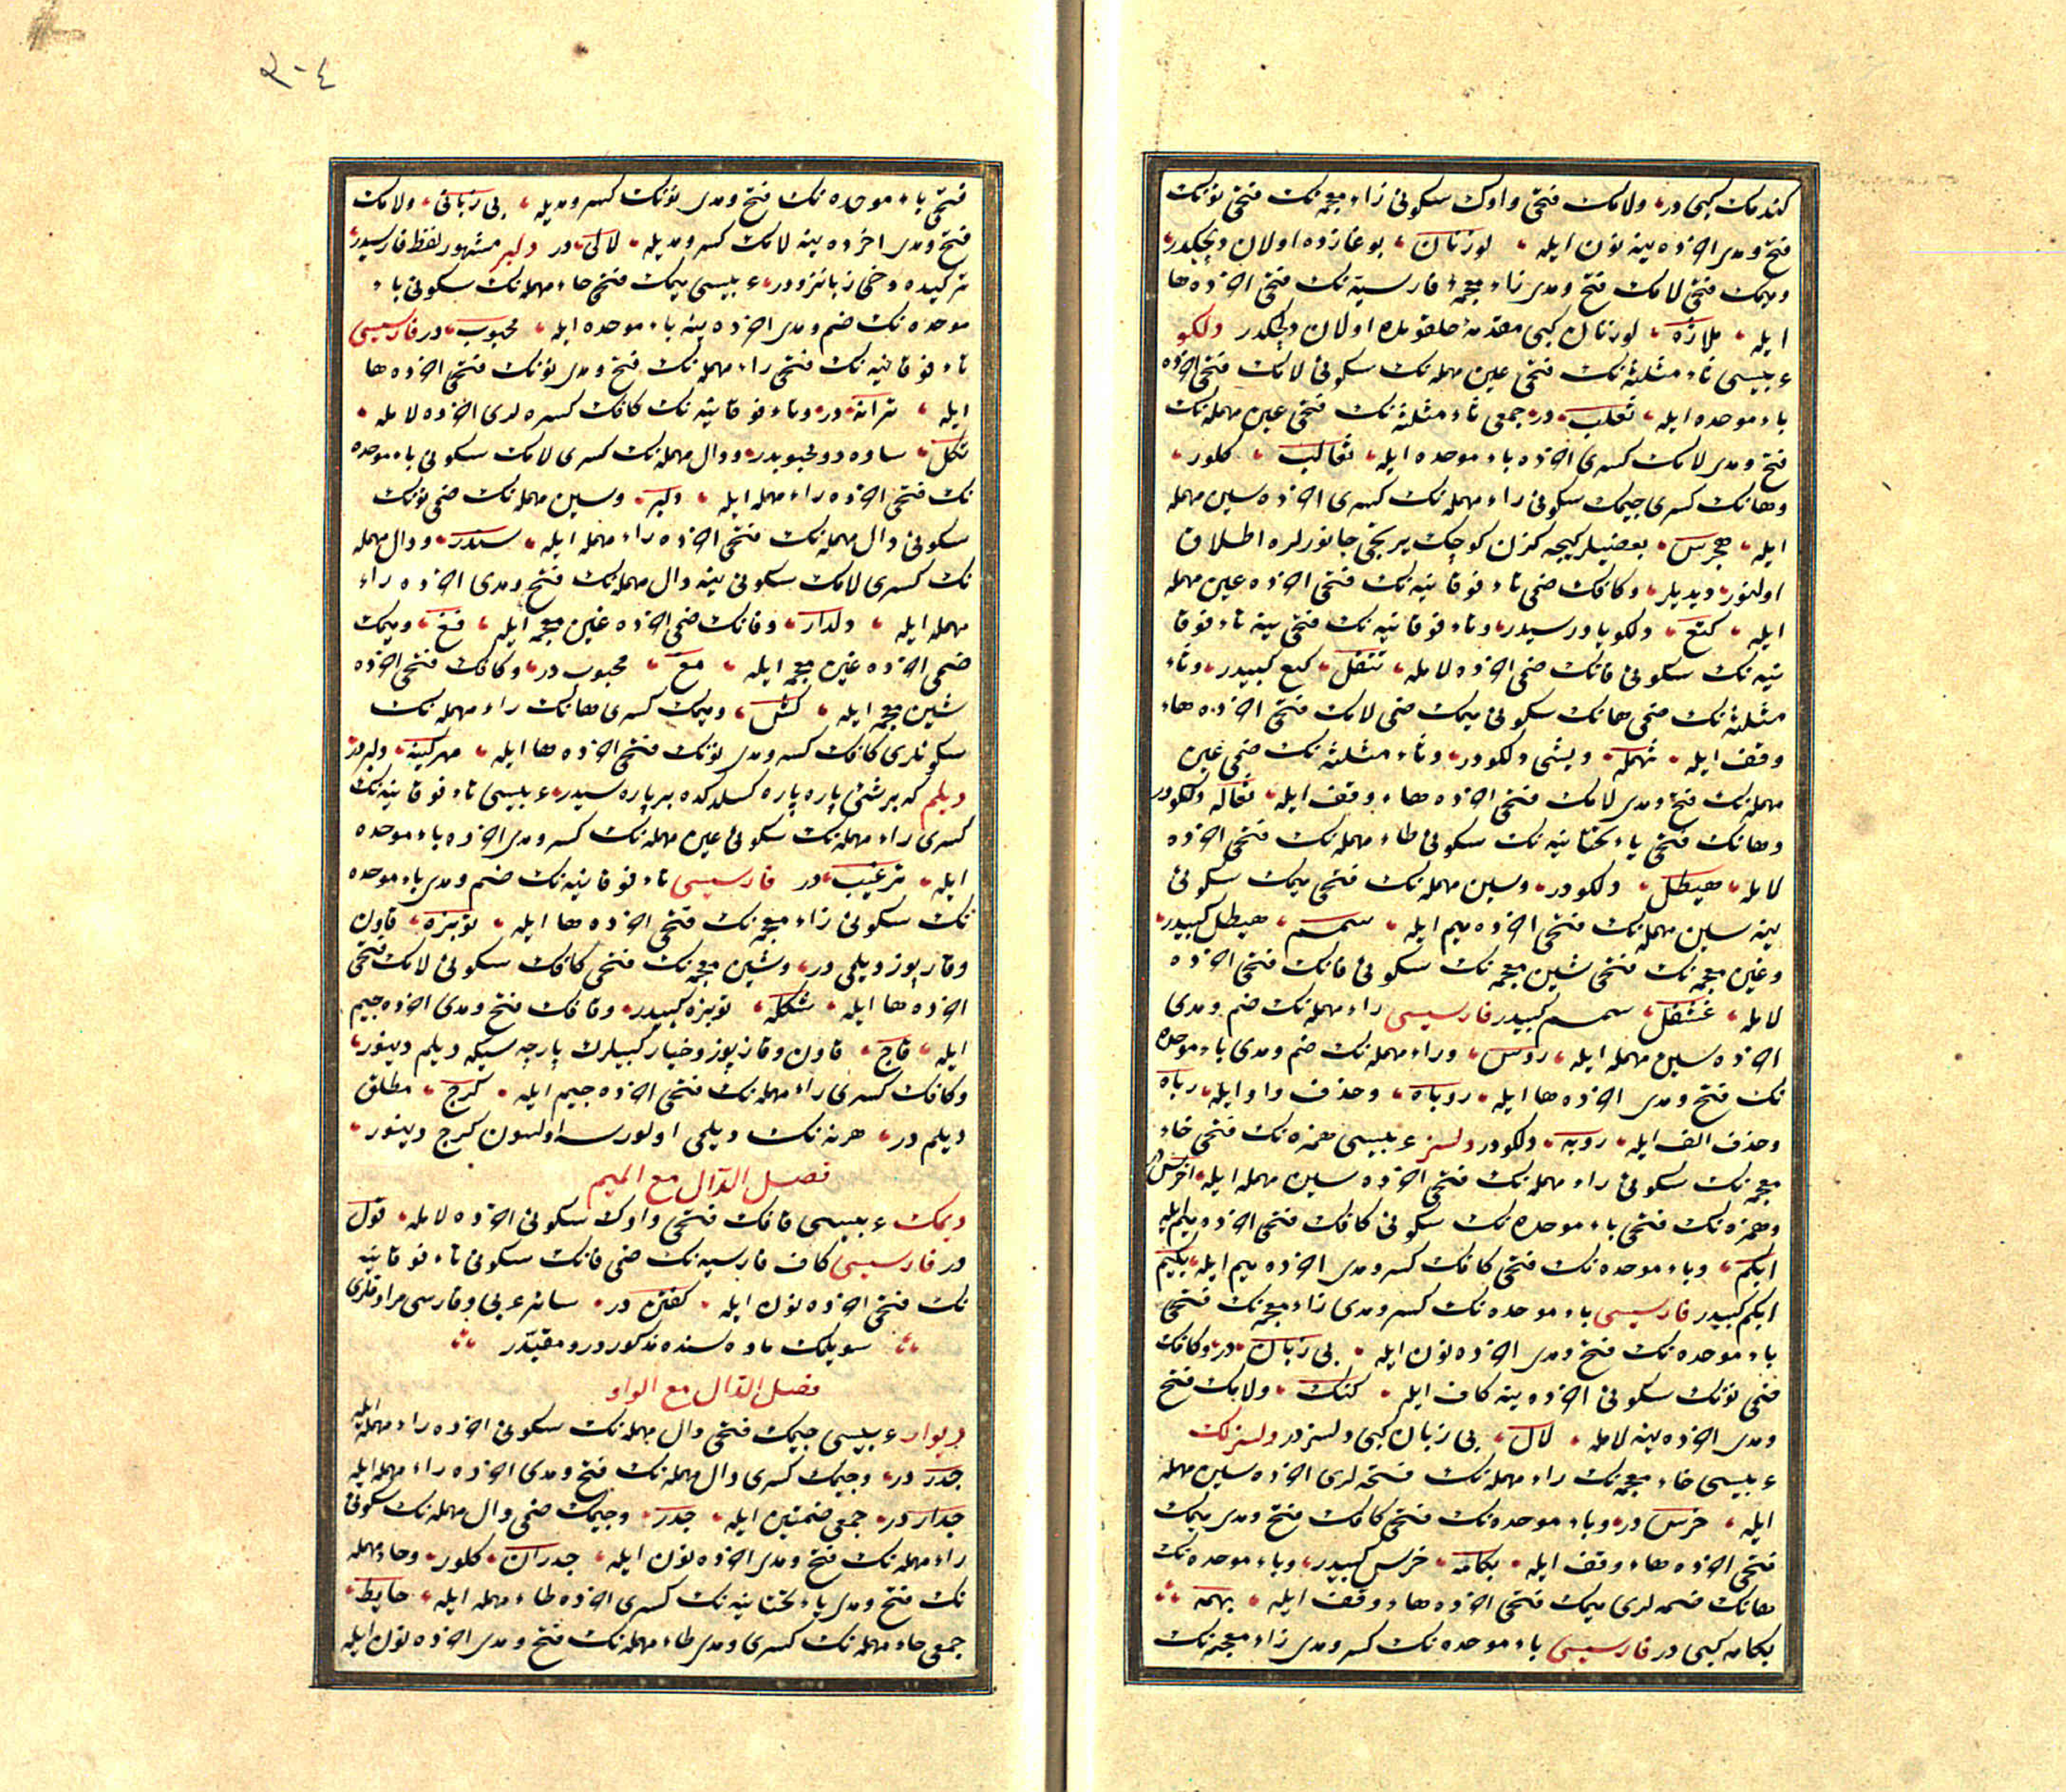 كندمك كبى در، ولامك فتحى واوك سكونى زاء معجمه نك فتحى نونك
فتح ومدى اخرده ينه نون ايله، لوزنان، بوغازده اولان دلجكدر،
وميمك فتحى لامك فتح ومدى زاء معجمهٔ فارسيه نك فتحى اخرده ها
ايله، ملاژه، لوزنان كبى مقدمهٔ حلقومده اولان دلجكدر دلكو
عربيسى ثاء مثلثه نك فتحى عين مهمله نك سكونى لامك فتحى اخرده
باء موحده ايله، ثعلب، در، جمعى ثاء مثلثه نك فتحى عين مهمله نك
فتح ومدى لامك كسرى اخرده باء موحده ايله، ثعالب، كلور،
وهانك كسرى جيمك سكونى راء مهمله نك كسرى اخرده سين مهمله
ايله، هجرس، بعضيلر كيجه كزن كوچك يرتجى جانورلره اطلاق
اولنور، ديديلر، وكافك ضمى تاء فوقانيه نك فتحى اخرده عين مهمله
ايله، كتع، دلكو ياوروسيدر، وتاء فوقانيه نك فتحى ينه تاء فوقا
نيه نك سكونى فانك ضمى اخرده لامله، تتفل، كتع كبيدر، وثاء
مثلثه نك ضمى هانك سكونى ميمك ضمى لامك فتحى اخرده هاء
وقف ايله، ثهمله، ديشى دلكودر، وثاء مثلثه نك ضمى عين
مهمله نك فتح ومدى لامك فتحى اخرده هاء وقف ايله، ثعاله دلكودر
وهانك فتحى ياء تحتانيه نك سكونى طاء مهمله نك فتحى اخرده
لامله، هيطل، دلكودر، وسين مهمله نك فتحى ميمك سكونى
ينه سين مهمله نك فتحى اخرده ميم ايله، سمسم، هيطل كبيدر،
وغين معجمه نك فتحى شين معجمه نك سكونى فانك فتحى اخرده
لامله، غشفل، سمسم كبيدر فارسيسى راء مهمله نك ضم ومدى
اخرده سين مهمله ايله، روس، وراء مهمله نك ضم ومدى باء موحده
نك فتح ومدى اخرده ها ايله، روباه، وحذف واو ايله، رباه
وحذف الف ايله، روبه، دلكودر دلسز عربيسى همزه نك فتحى خاء
معجمه نك سكونى راء مهمله نك فتحى اخرده سين مهمله ايله، اخرس در
وهمزه نك فتحى باء موحده نك سكونى كافك فتحى اخرده ميم ايله
ابكم، وباء موحده نك فتحى كافك كسر ومدى اخرده ميم ايله، بكيم
ابكم كبيدر فارسيسى باء موحده نك كسر ومدى زاء معجمه نك فتحى
باء موحده نك فتح ومدى اخرده نون ايله، بى زبان، در، وكافك
فتحى نونك سكونى اخرده ينه كاف ايله، كنك، ولامك فتح
ومدى اخرده ينه لامله، لال، بى زبان كبى دلسزدر دلسزلك
عربيسى خاء معجمه نك راء مهمله نك فتحه لرى اخرده سين مهمله
ايله، خرس در، وباء موحده نك فتحى كافك فتح ومدى ميمك
فتحى اخرده هاء وقف ايله، بكامه، خرس كبيدر، وباء موحده نك
هانك ضمه لرى ميمك فتحى اخرده هاء وقف ايله، بهمه
بكامه كبى در فارسيسى باء موحده نك كسر ومدى زاء معجمه نك
٢٠٤
فتحى باء موحده نك فتح ومدى نونك كسر ومديله، بى زبانى، ولامك
فتح ومدى اخرده ينه لامك كسر ومديله، لالى، در دلبر مشهور لفظ فارسيدر،
تركيده دخى زبانزددر، عربيسى ميمك فتحى حاء مهمله نك سكونى باء
موحده نك ضم ومدى اخرده ينه باء موحده ايله، محبوب، در فارسيسى
تاء فوقانيه نك فتحى راء مهمله نك فتح ومدى نونك فتحى اخرده ها
ايله، ترانه، در، وتاء فوقانيه نك كافك كسره لرى اخرده لامله،
تكل، ساده رو محبوبدر، ودال مهمله نك كسرى لامك سكونى باء موحده
نك فتحى اخرده راء مهمله ايله، دلبر، وسين مهمله نك ضمى نونك
سكونى دال مهمله نك فتحى اخرده راء مهمله ايله، سندر، ودال مهمله
نك كسرى لامك سكونى ينه دال مهمله نك فتح ومدى اخرده راء
مهمله ايله، دلدار، وفانك ضمى اخرده غين معجمه ايله، فغ، وميمك
ضمى اخرده غين معجمه ايله، مغ، محبوب در، وكافك فتحى اخرده
شين معجمه ايله، كش، وميمك كسرى هانك راء مهمله نك
سكونلرى كافك كسر ومدى نونك فتحى اخرده ها ايله، مهركينه، دلبردر
ديلم كه بر شئى پاره پاره كسلدكده بر پاره سيدر، عربيسى تاء فوقانيه نك
كسرى راء مهمله نك سكونى عين مهمله نك كسر ومدى اخرده باء موحده
ايله، ترعيب، در فارسيسى تاء فوقانيه نك ضم ومدى باء موحده
نك سكونى زاء معجمه نك فتحى اخرده ها ايله، توبزه، قاون
وقارپوز ديلمى در، وشين معجمه نك فتحى كافك سكونى لامك فتحى
اخرده ها ايله، شكله، توبزه كبيدر، وقافك فتح ومدى اخرده جيم
ايله، قاج، قاون وقارپوز وخيار كبيلرك پارچه سيكه ديلم دينور،
وكافك كسرى راء مهمله نك فتحى اخرده جيم ايله، كرج، مطلق
ديلم در، هر نه نك ديلمى اولورسه اولسون كرج دينور،
فصل الدال مع الميم
ديمك عربيسى قافك فتحى واوك سكونى اخرده لامله، قول
در فارسيسى كاف فارسيه نك ضمى فانك سكونى تاء فوقانيه
نك فتحى اخرده نون ايله، كفتن در، سائر عربى وفارسى مرادفلرى
سويلمك ماده سنده مذكوردر ومقيددر
فصل الدال مع الواو
ديوار عربيسى جيمك فتحى دال مهمله نك سكونى اخرده راء مهمله ايله
جدر در، وجيمك كسرى دال مهمله نك فتح ومدى اخرده راء مهمله ايله
جدار در، جمعى ضمتين ايله، جدر، وجيمك ضمى دال مهمله نك سكونى
راء مهمله نك فتح ومدى اخرده نون ايله، جدران، كلور، وحاء مهمله
نك فتح ومدى ياء تحتانيه نك كسرى اخرده طاء مهمله ايله، حايط،
جمعى حاء مهمله نك كسرى ومدى طاء مهمله نك فتح ومدى اخرده نون ايله